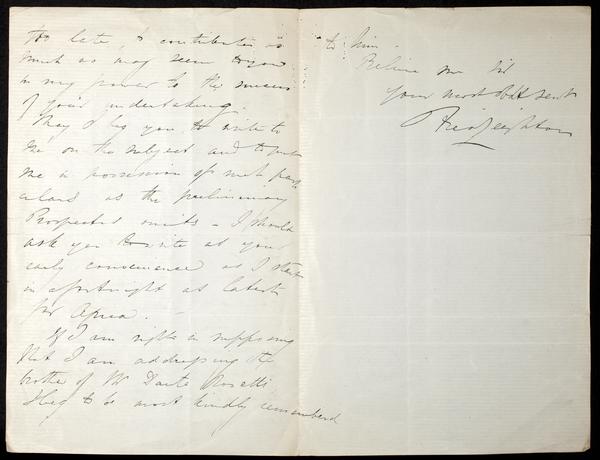 too late, to contribute as
much as may seem to you
in my power to the success
of your undertaking.
May I beg you to write to
me on the subject and to put
me in possession of such parti-
culars as the preliminary
Prospectus omits - I should
ask you to write at your
early convenience as I start
in a fortnight at latest
for Africa. -
If I am right in supposing
that I am addressing the
brother of Mr Dante Rossetti
I beg to be most kindly remembered
to him -
Believe me Sir
Your most obdt servt
Fred Leighton